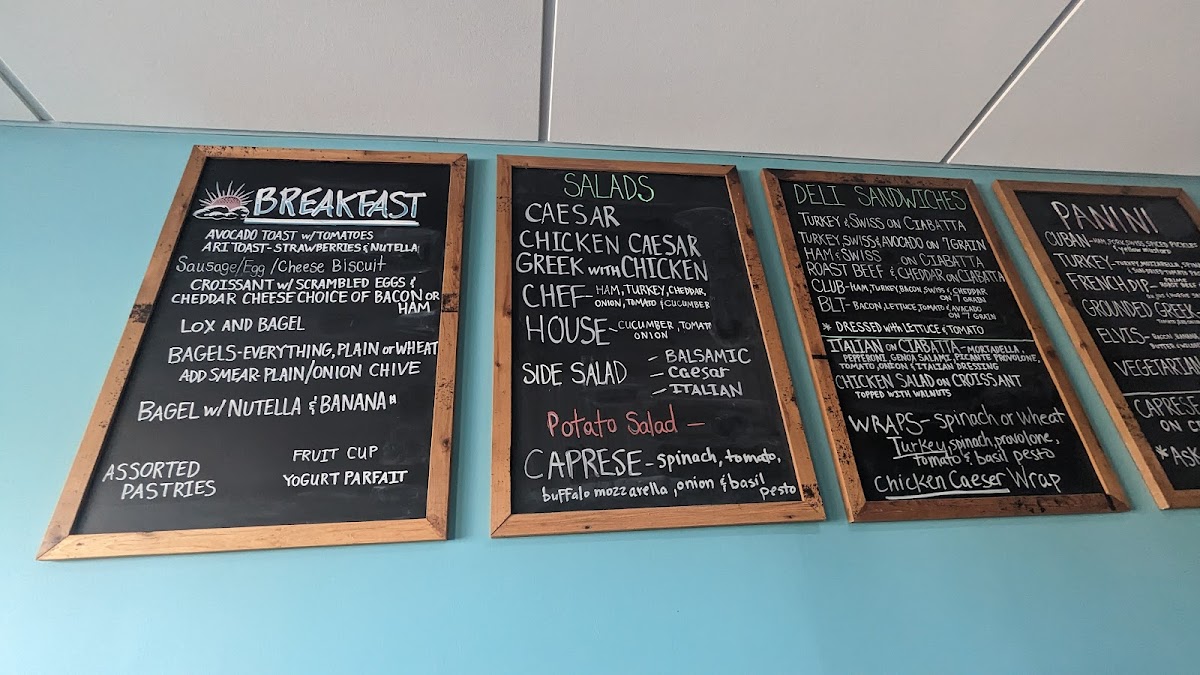 BREAKFAST
AVOCADO TOAST w/TOMATOES
ARI TOAST-STRAWBERRIES & NUTELLA
Sausage/Egg/Cheese Biscuit
CROISSANT w/ SCRAMBLED EGGS &
CHEDDAR CHEESE CHOICE OF BACON or
HAM
LOX AND BAGEL
BAGELS-EVERYTHING, PLAIN or WHEAT
ADD SMEAR-PLAIN/ONION CHIVE
BAGEL w/ NUTELLA & BANANA
FRUIT CUP
ASSORTED
PASTRIES
YOGURT PARFAIT
SALADS
CAESAR
CHICKEN CAESAR
GREEK with CHICKEN
CHEF- HAM, TURKEY, CHEDDAR,
ONION, TOMATO & CUCUMBER
HOUSE- CUCUMBER, TOMATO
ONION
SIDE SALAD
- BALSAMIC
- Caesar
- ITALIAN
Potato Salad -
CAPRESE- spinach, tomato,
buffalo mozzarella, onion & basil
pesto
DELI SANDWICHES
TURKEY & SWISS ON CIABATTA
TURKEY, SWISS & AVOCADO ON 7 GRAIN
HAM & SWISS ON CIABATTA
ROAST BEEF & CHEDDAR ON CIABATTA
CLUB-HAM, TURKEY, BACON, SWISS & CHEDDAR
ON 7 GRAIN
BLT-BACON, LETTUCE, TOMATO & AVOCADO
ON 7 GRAIN
* DRESSED with LETTUCE & TOMATO
ITALIAN ON CIABATTA-MORTADELLA,
PEPPERONI, GENOA SALAMI, PICANTE PROVOLONE,
TOMATO, ONION & ITALIAN DRESSING
CHICKEN SALAD ON CROISSANT
TOPPED WITH WALNUTS
WRAPS- spinach or wheat
Turkey, spinach, provolone,
tomato & basil pesto
Chicken Caeser Wrap
PANINI
CUBAN-HAM, PORK, SWISS, SPICED PICKLES
& yellow mustard
TURKEY-TURKEY, MOZZARELLA, SPINACH
FRENCH DIP-
GROUNDED GREEK
ELVIS- BACON, BANANA,
VEGETARIAN
CAPRESE
ON
* ASK